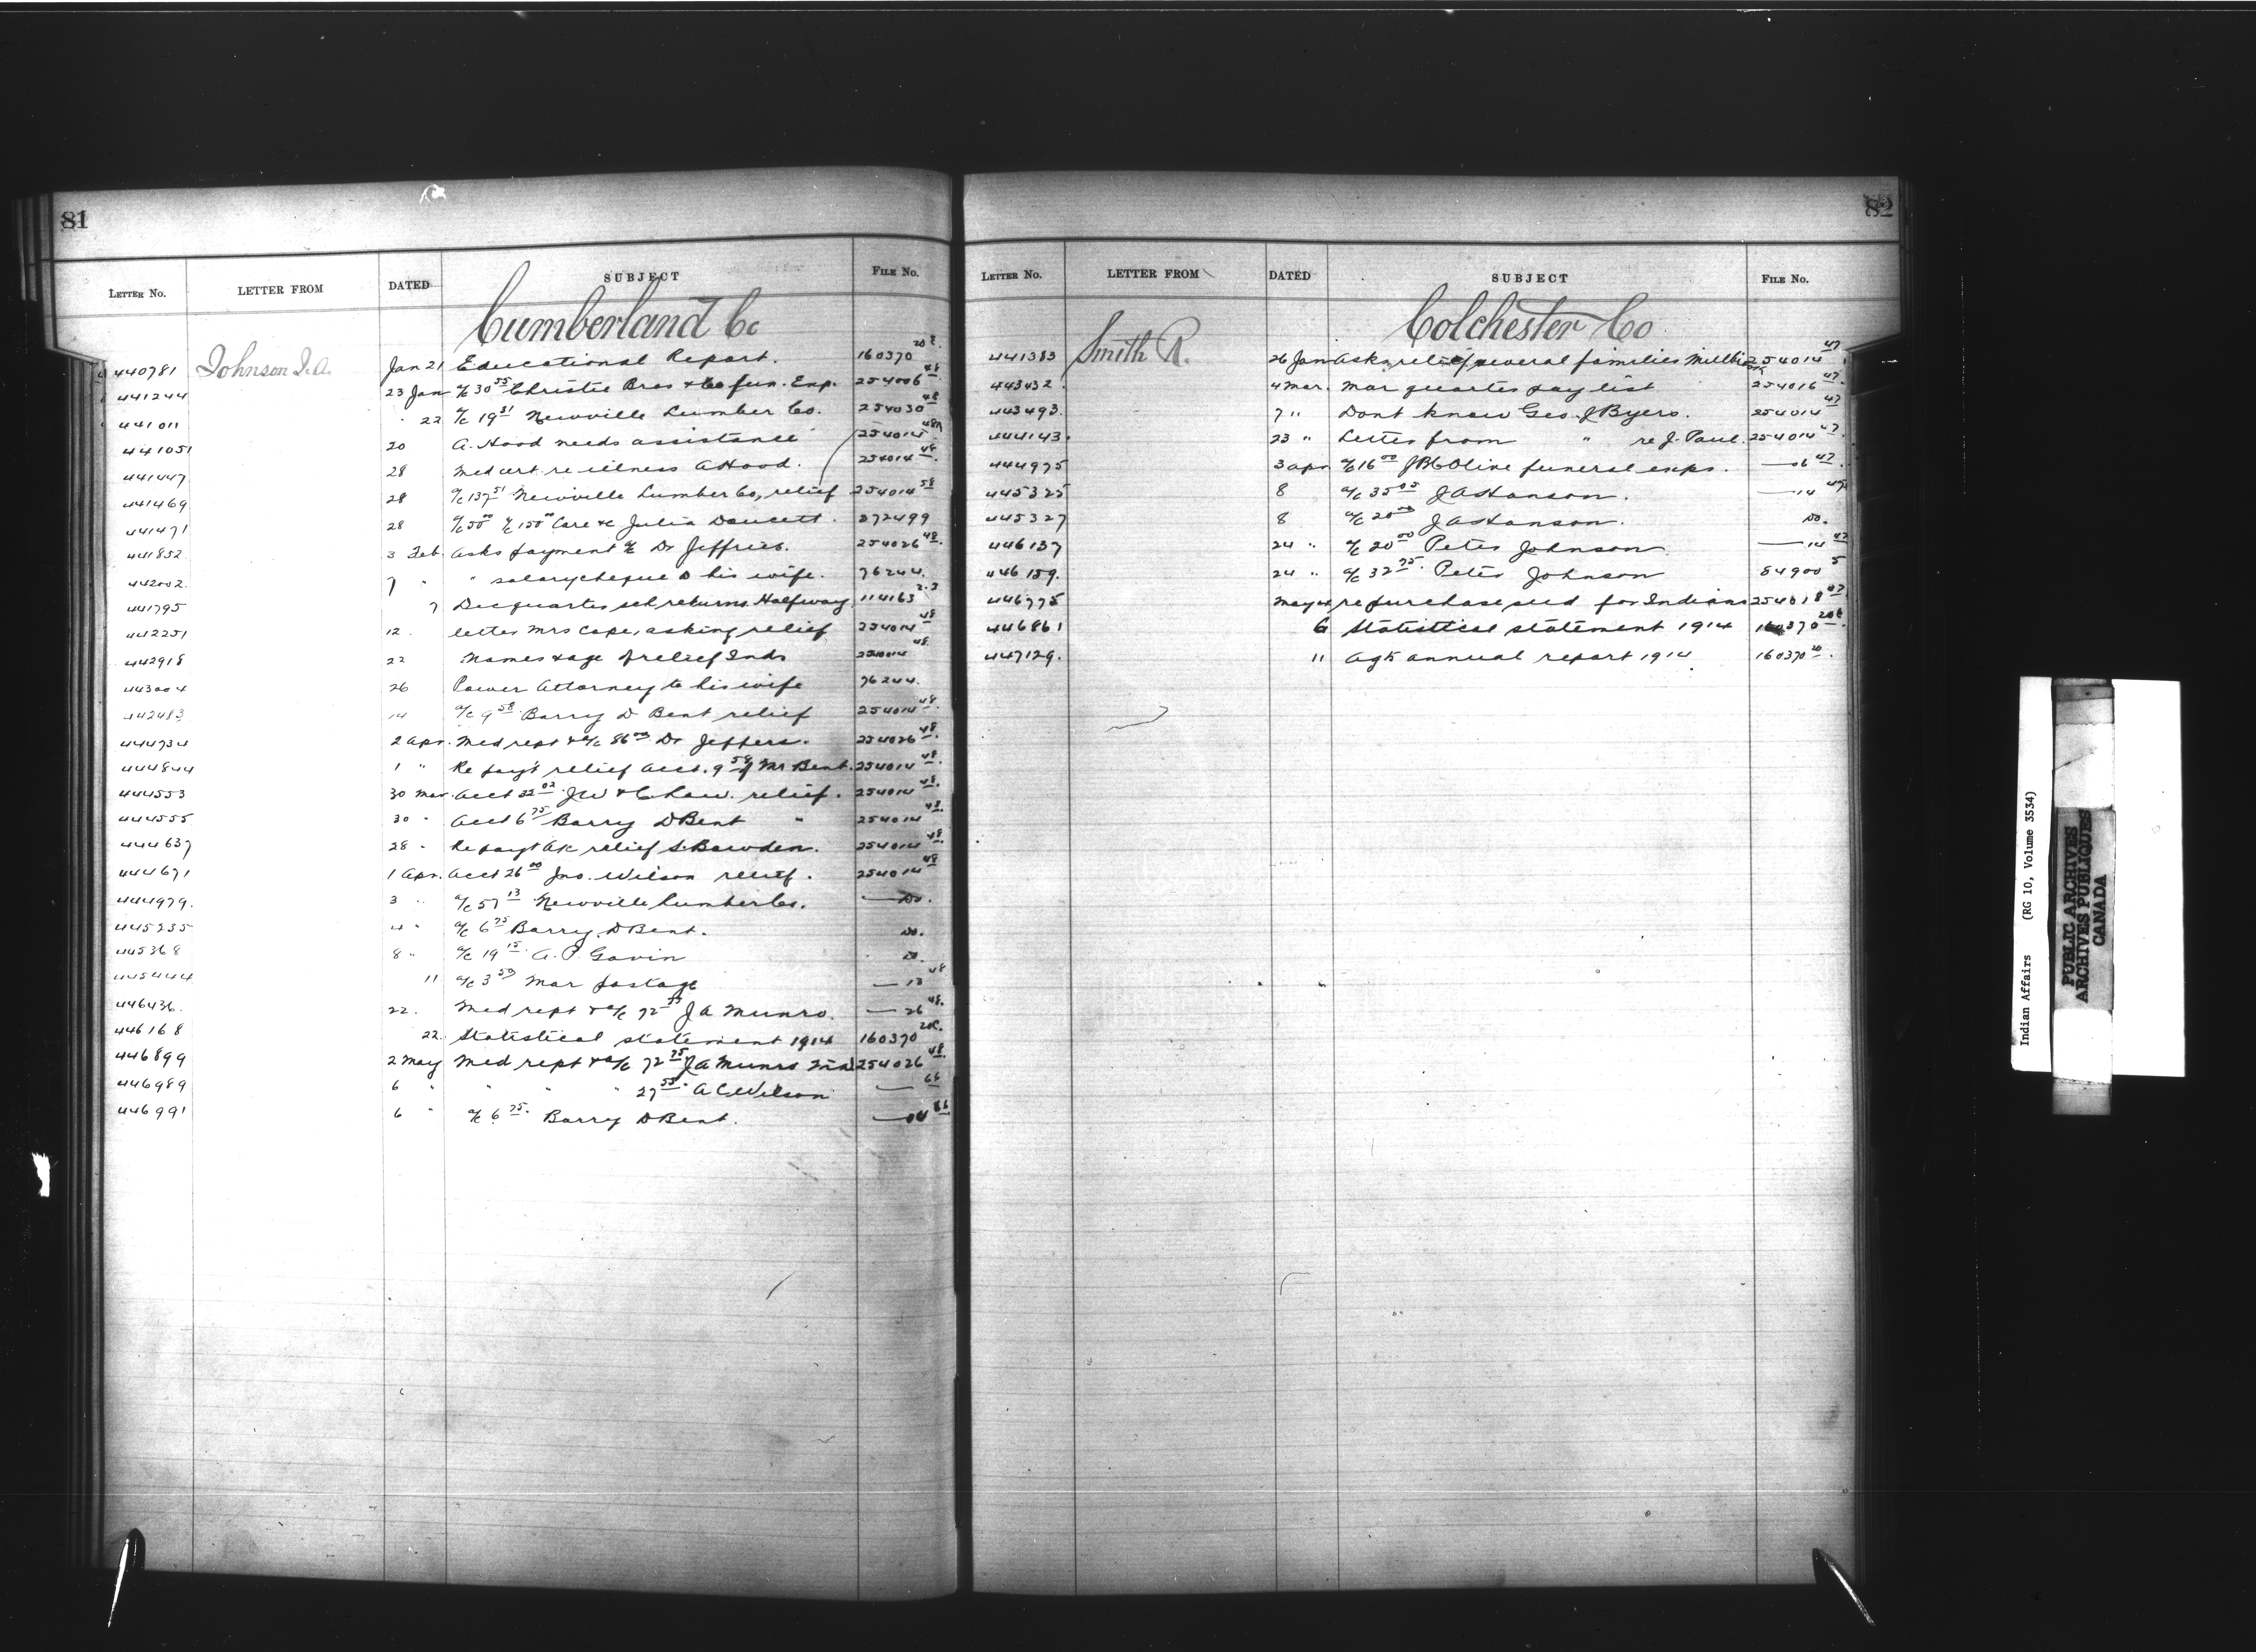 81
LETTER NO. LETTER FROM DATED SUBJECT FILE No.
Cumberland Co
440781 Johnson J.A. Jan 21 Educational Report. 160370 20 2.
441244 23 Jan a/c 30 55 Christie Bros & Co fun. Exp. 254006 48
441011 " 22 a/c 19 51 Newville Lumber Co. 254030 48
441051 20 A. Hood needs assistance 254014 48A
441447 28 Med cert. re illness A Hood. 254014 48.
441469 28 a/c 137 51 Newville Lumber Co, relief 254014 58
441471 28 a/c 50 00 a/c 150 00 Care &c Julia Doucett. 372499
441852 3 Feb. Asks payment a/c Dr Jeffries. 254026 48.
442002. 7 " " salary cheque to his wife. 76244.
441795 7 Dec quarter sch returns Halfway 114163 2-3
442251 12. letter Mrs Cope, asking relief 254014 48
442918 22 Names & age of relief Inds 254014 48.
443004 26 Power Attorney to his wife 76244.
442483 14 a/c 9 58 Barry D Bent relief 254014 48.
444734 2 Apr. Med rept & a/c 86 00 Dr Jeffers. 254026 48.
444844 1 " Re payt relief acct. 9 58 of Mr Bent. 254014 48.
444553 30 Mar. Acct 32 02 JW & C Law. relief. 254014 48.
444555 30 " Acct 6 75 Barry D Bent " 254014 48.
444637 28 " Re payt a/c relief S. Bowden. 254014 48.
444671 1 Apr. Acct 26 00 Jno. Wilson relief. 254014 48
444979. 3 " a/c 57 13 Newville Lumber Co. — Do.
445235 4 " a/c 6 75 Barry D Bent. Do.
445368 8 " a/c 19 15 A. P. Gavin Do.
445444 11 a/c 3 50 Mar postage — 13 48
446436. 22. Med rept & a/c 72 75 J A Munro. — 26 48.
446168 22. Statistical statement 1914 160370 20c.
446899 2 May Med rept & a/c 72 75 J A Munro 254026 48.
446989 6 " " " " 27 55 A C Wilson — 66
446991 6 " a/c 6 75. Barry D Bent.
82
LETTER NO. LETTER FROM DATED SUBJECT FILE No.
Colchester Co
441383 Smith R. 26 Jan Asks relief several families 254014 47
443432. 4 Mar. Mar quarter pay list 254016 47.
443493. 7 " Dont know Geo. J Byers. 254014 47
444143. 23 " Letter from " re J. Paul. 254014 47.
444975 3 Apr a/c 16 00 funeral exps. — 6 47.
445325 8 a/c 35 05 J A Hanson. — 14 47
445327 8 a/c 20 00 J A Hanson. Do.
446137 24 " a/c 20 00 Peter Johnson — 14 47
446159. 24 " a/c 32 75. Peter Johnson 84900 5
446775 May re purchase seed for Indians 254018 47
446861 6 Statistical statement 1914 160370 20c.
447129. 11 Agts annual report 1914 160370 20.
Indian Affairs (RG 10, Volume 3534)
PUBLIC ARCHIVES
ARCHIVES PUBLIQUES
CANADA